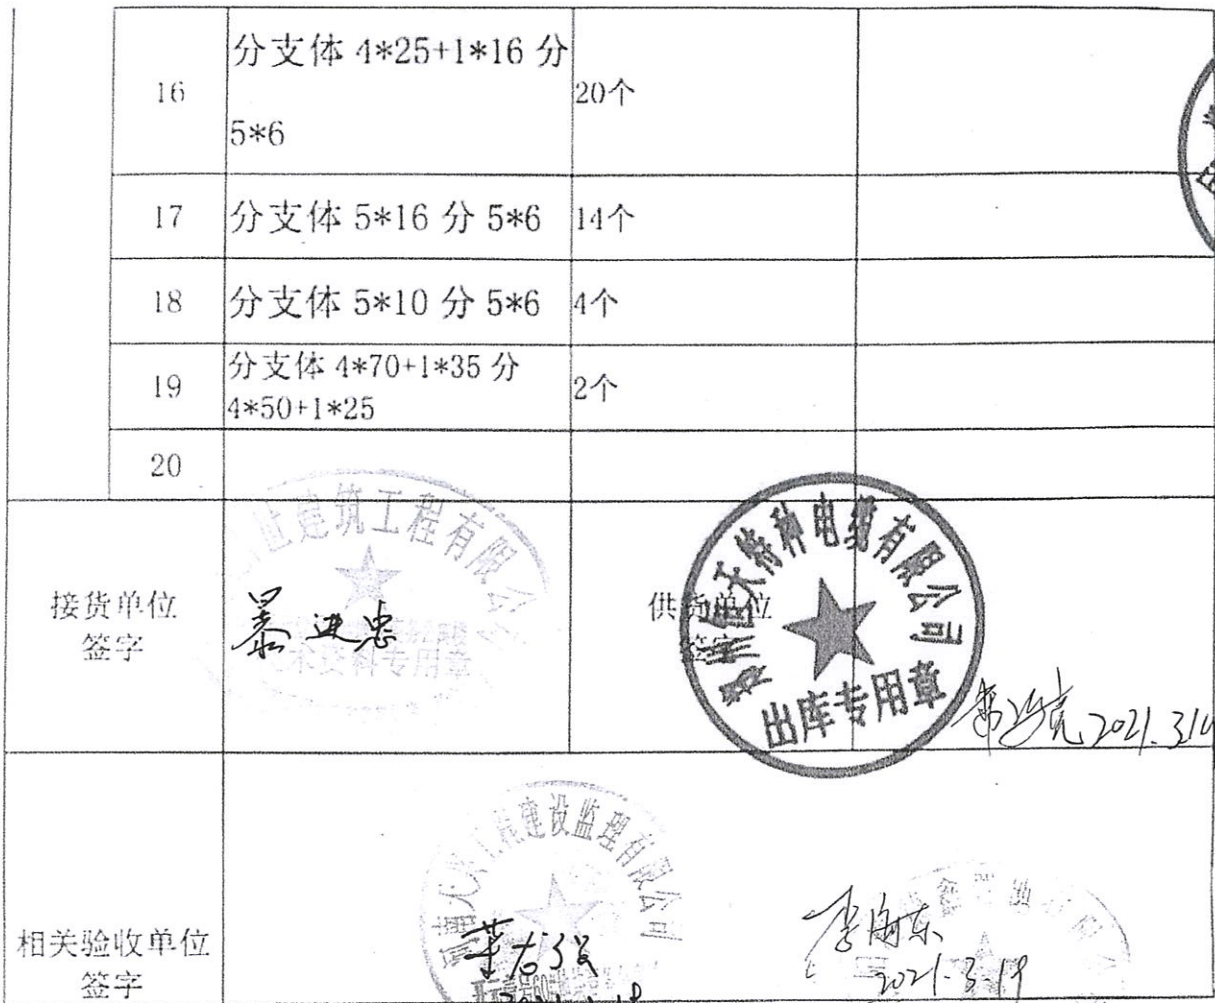 16
分支体 4*25+1*16 分
5*6
20个
17
分支体 5*16 分 5*6
14个
18
分支体 5*10 分 5*6
4个
19
分支体 4*70+1*35 分
4*50+1*25
2个
20
接货单位
签字
建筑工程有限公
术资料专用章
进忠
供货单位
签字
天特种电缆有限公司
出库专用章
2021.3.1
相关验收单位
签字
工程建设监理有限公司
李海东
2021-3-19